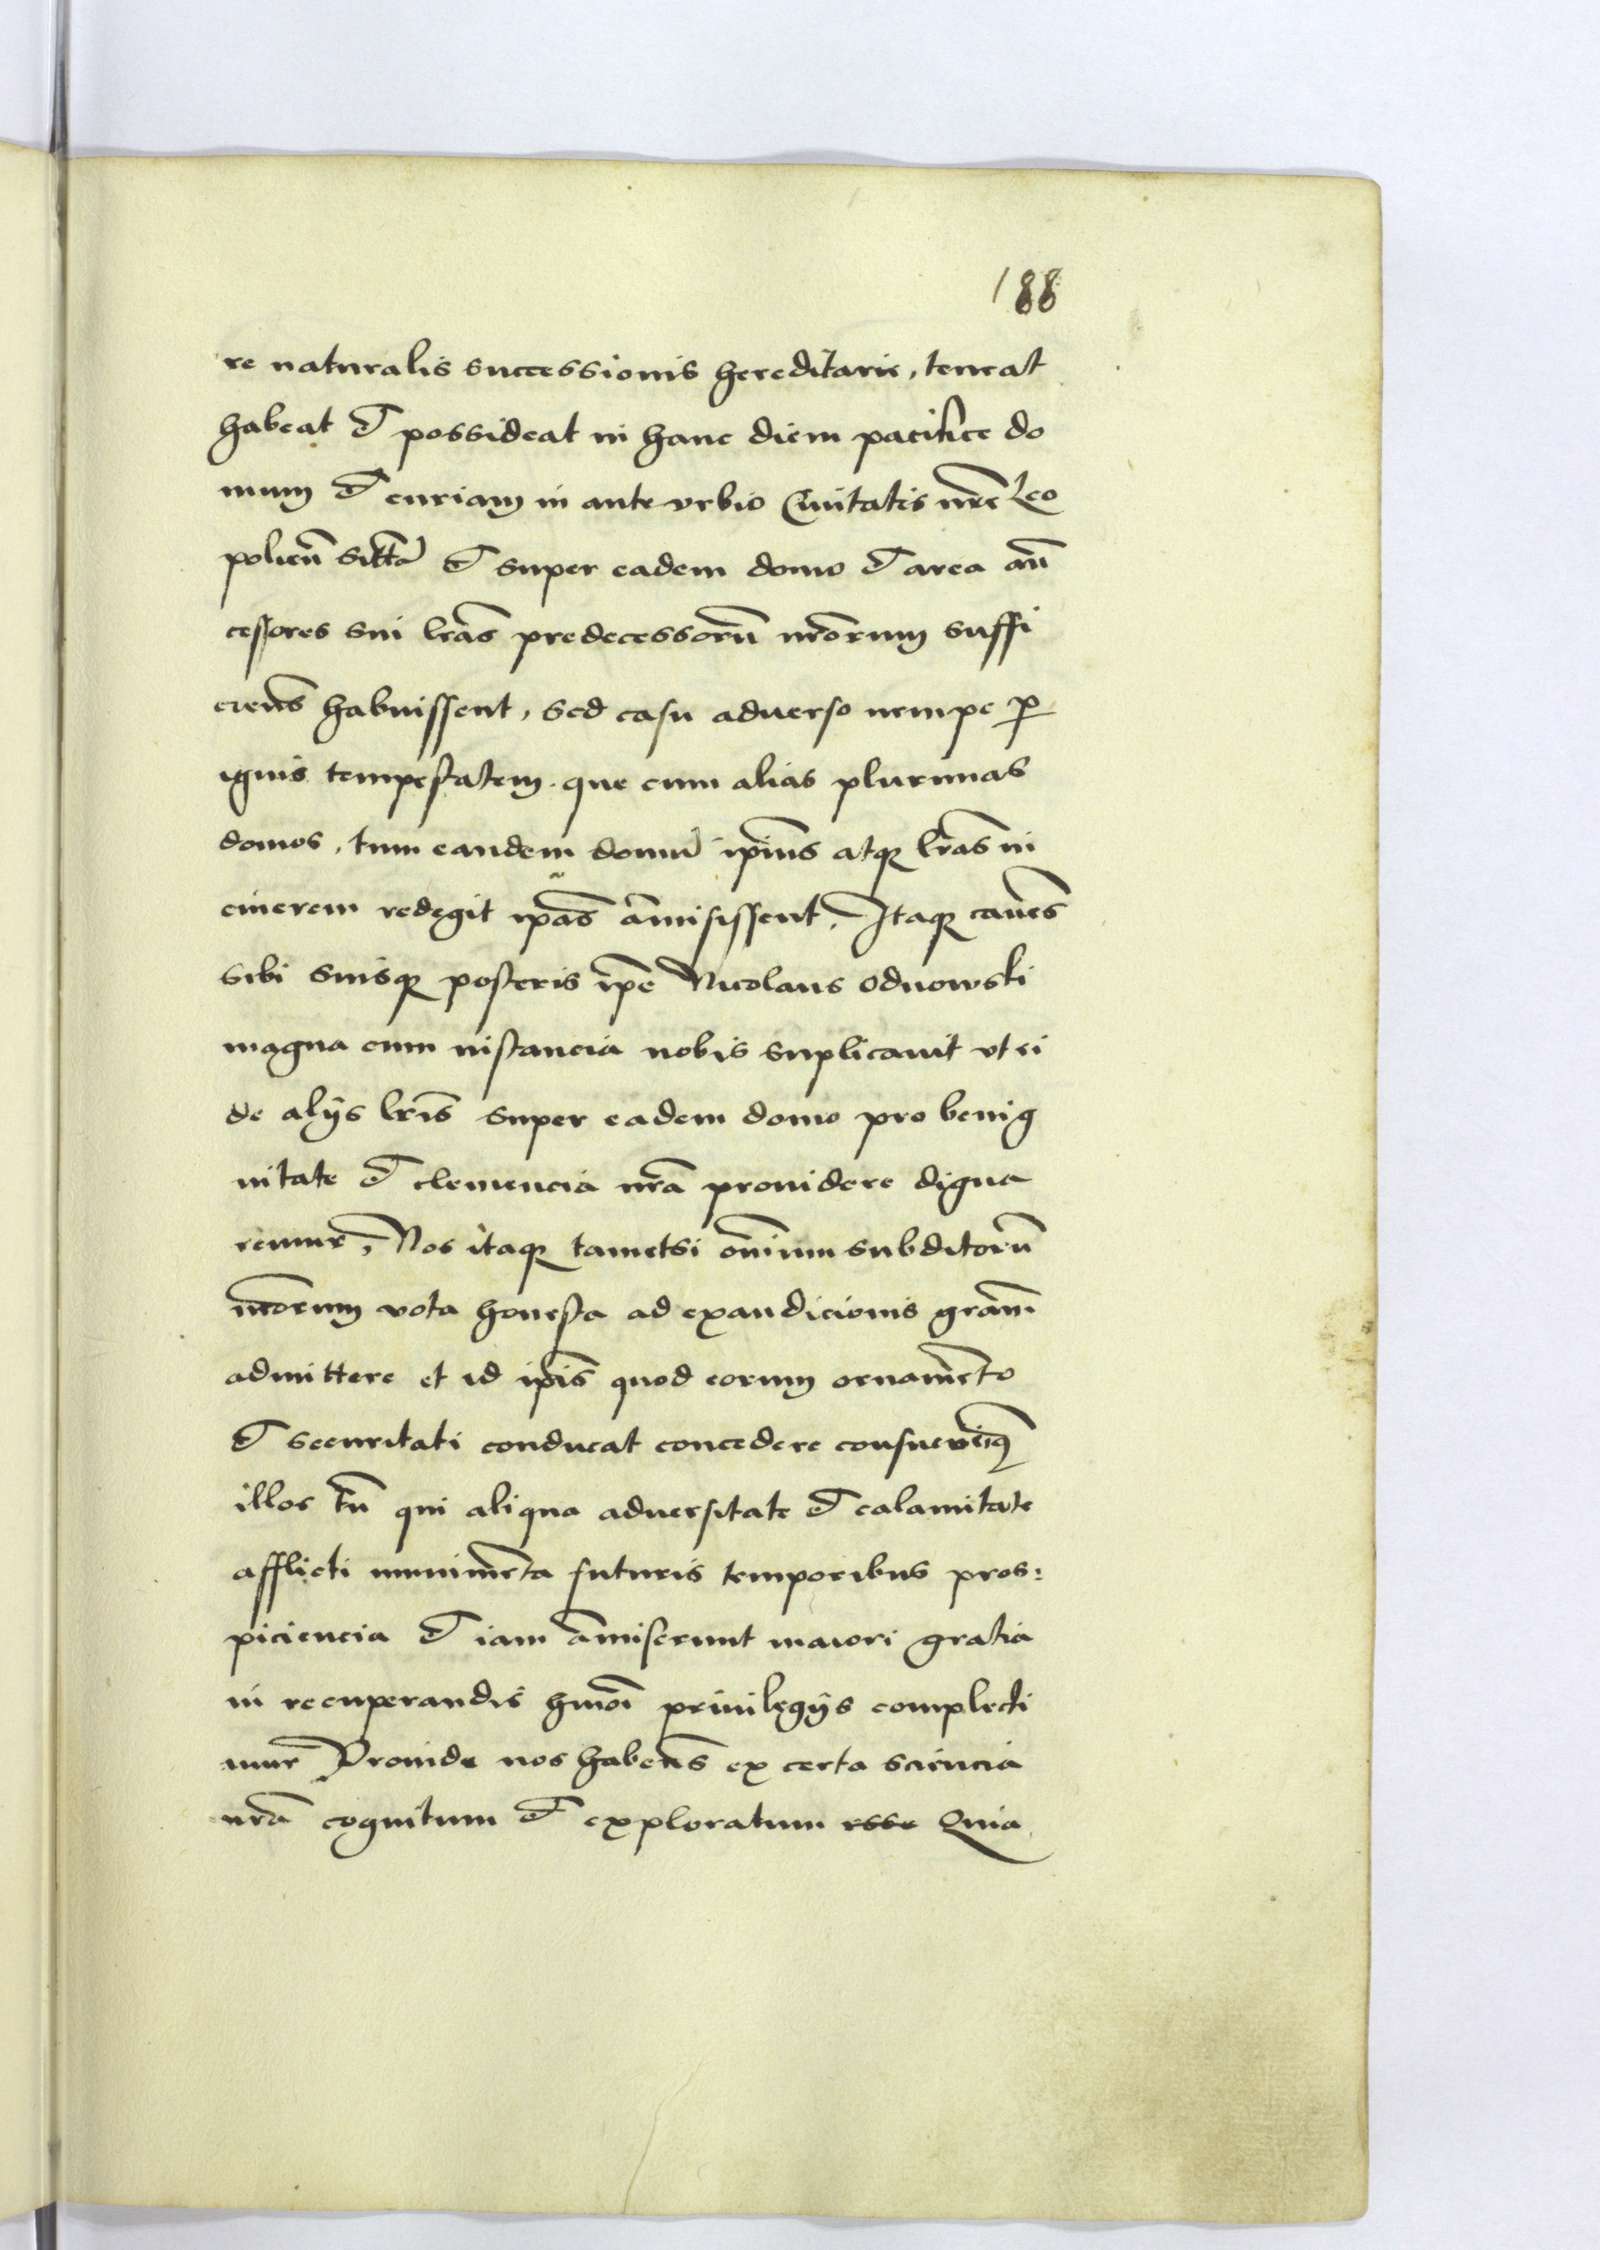 188
re naturalis successionis hereditarie, teneat
habeat et possideat in hanc diem pacifice do
mum et curiam in ante vrbio Ciuitatis nr̃e Leo
policñ sittã et super eadem domo et area añ
cessores sui lr̃as predecessorũ nr̃orum suffi
cieñs habuissent, sed casu aduerso nempe ꝑ
ignis tempestatem que cum alias plurimas
domos, tum eandem domũ ip̃ius atqꝫ lr̃as in
cinerem redegit ip̃as amisissent, Itaqꝫ caueñs
sibi suisqꝫ posteris ip̃e Nicolaus Odnowski
magna cum instancia nobis suplicauit vt ei
de alijs lr̃is super eadem domo pro benig
nitate et clemencia nr̃a prouidere digna
remur, Nos itaqꝫ tametsi om̃ium subditorũ
nr̃orum vota honesta ad exaudicionis gr̃am
admittere et id ip̃is quod eorum ornamẽto
et securitati conducat concedere consueuerimꝰ
illos tñ qui aliqua aduersitate et calamitate
afflicti munimẽta futuris temporibus pros:
piciencia et iam amiserunt maiori gratia
in recuperandis hmõi priuilegijs complecti
mur Proinde nos habeñs ex certa sciencia
nr̃a cognitum et exploratum esse Quia